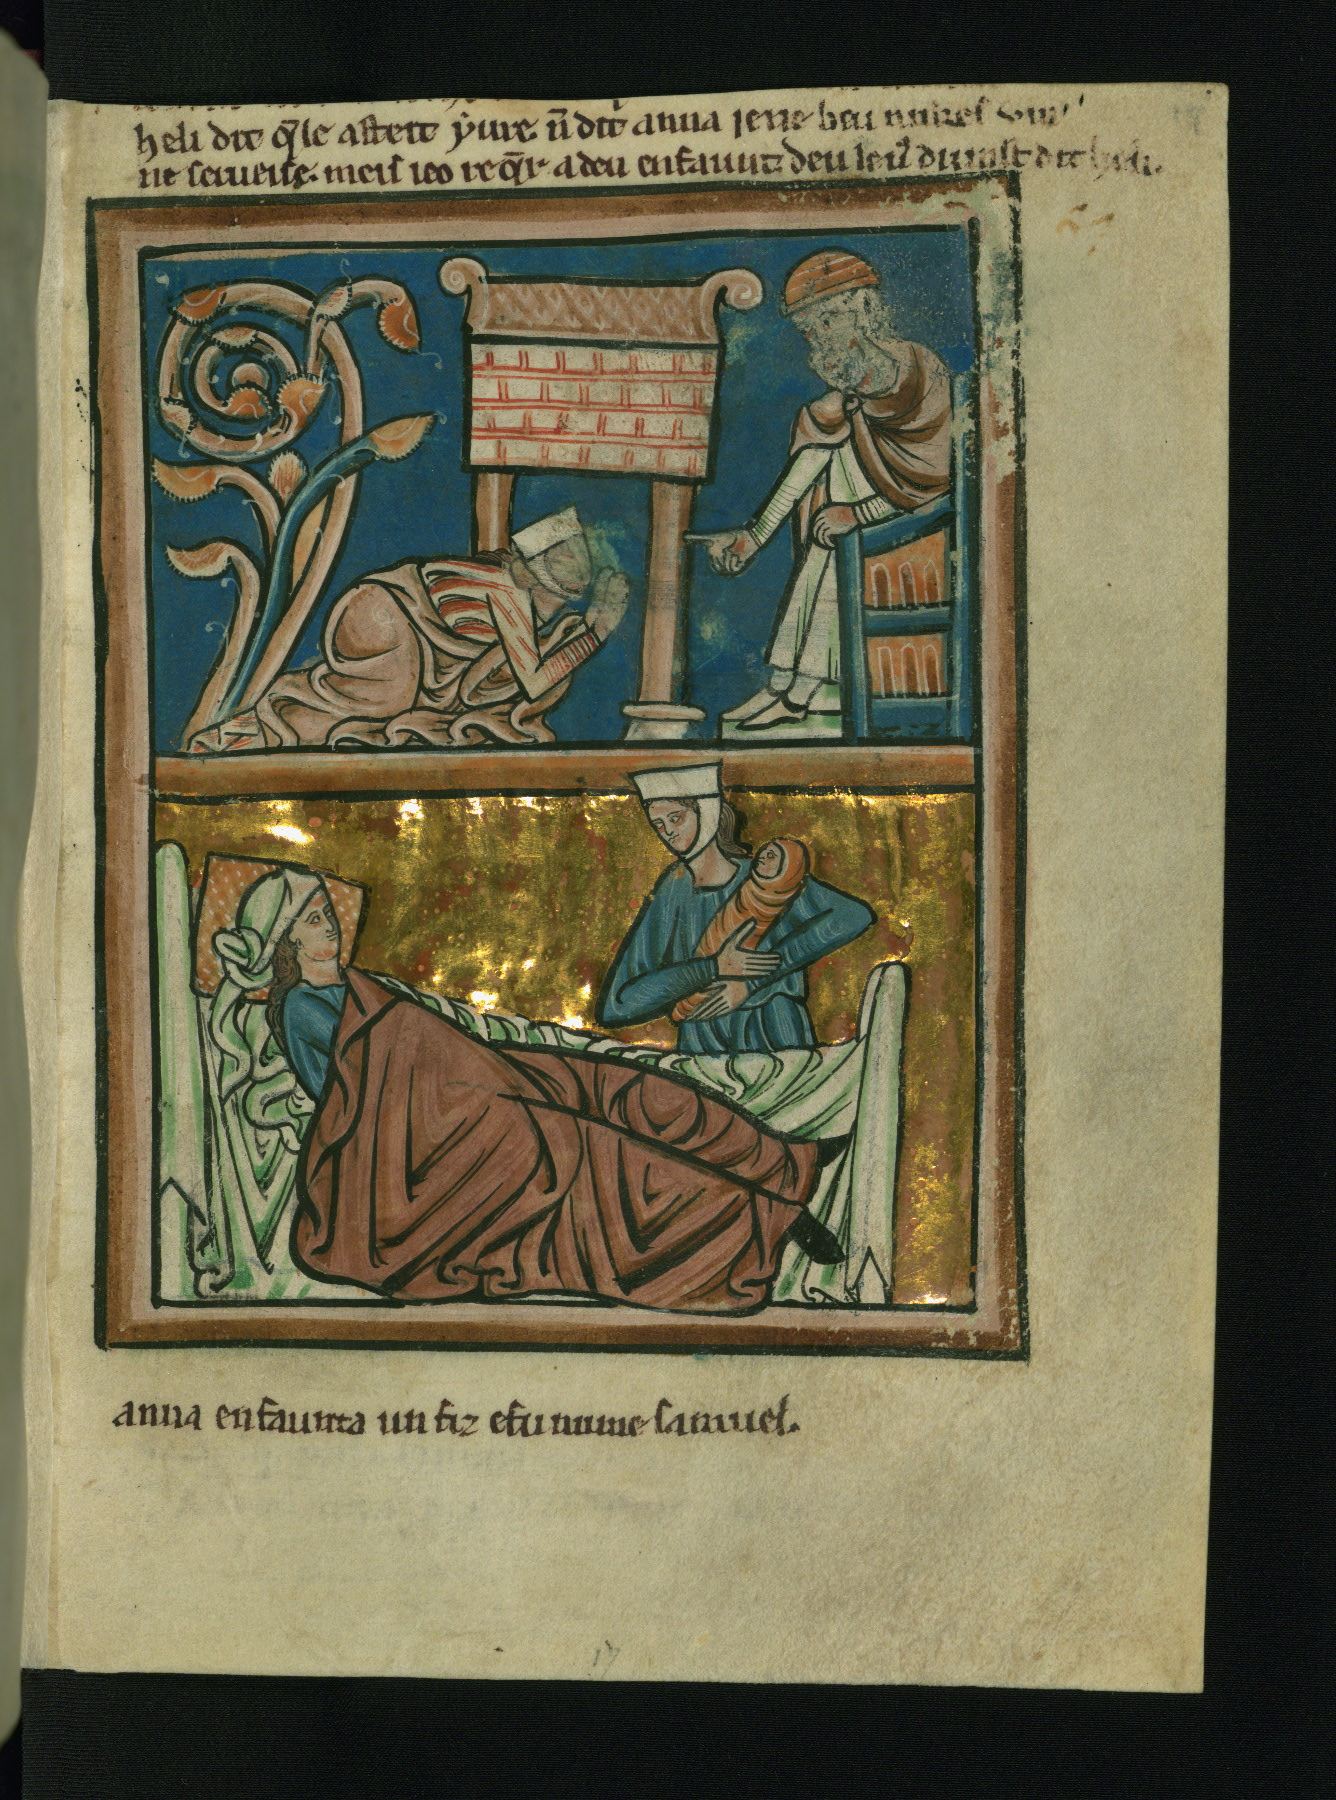 heli dit q̃le asteit ẏure. ñ dit anna jeo ne beu
ne serueise. meis ieo req̃r a deu enfaunt. deu le ... dit heli.
anna enfaunta un fiz e fu nume samuel.
17